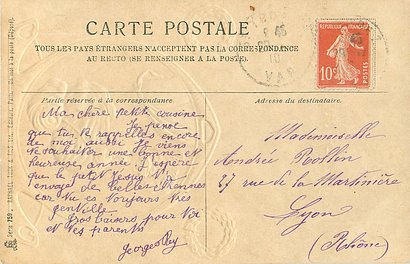 CARTE POSTALE
TOUS LES PAYS ÉTRANGERS N'ACCEPTENT PAS LA CORRESPONDANCE
AU RECTO (SE RENSEIGNER A LA POSTE).
REPUBLIQUE FRANÇAISE
10c
VAR
Partie réservée à la correspondance
Adresse du destinataire.
Ma chère petite cousine
Je pense
que tu te rappelles encore
de moi aussi je viens
te souhaiter une bonne et
heureuse année. J'espère
que le petit Jésus t'a
envoyé de belles étrennes
car tu es toujours très
gentille
Gros baisers pour toi
et tes parents
Georges Rey
Mademoiselle
Andrée Bollin
27 rue de la Martinière
Lyon
(Rhône)